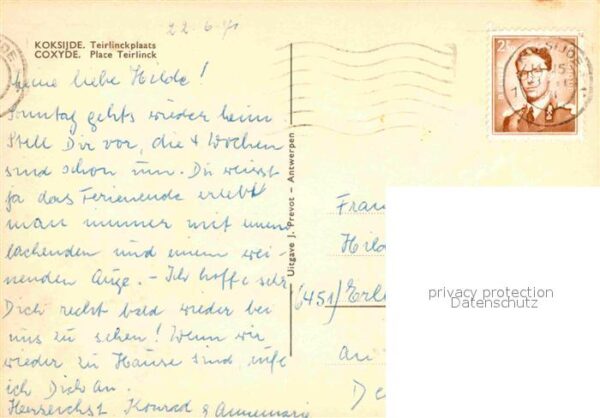 22-6-71
KOKSIJDE. Teirlinckplaats
COXYDE. Place Teirlinck
Meine liebe Hilde!
Sonntag gehts wieder heim
Stell Dir vor, die 4 Wochen
sind schon um. Du weisst
ja das Ferienende erlebt
man immer mit einem
lachenden und einem wei-
nenden Auge. - Ich hoffe sehr
Dich recht bald wieder bei
uns zu sehen! Wenn wir
wieder zu Hause sind, rufe
ich Dich an.
Herzlichst Konrad & Annemarie
Uitgave J. Prevot - Antwerpen
2F
Frau
Hild
(451) Erl
An
De
privacy protection
Datenschutz